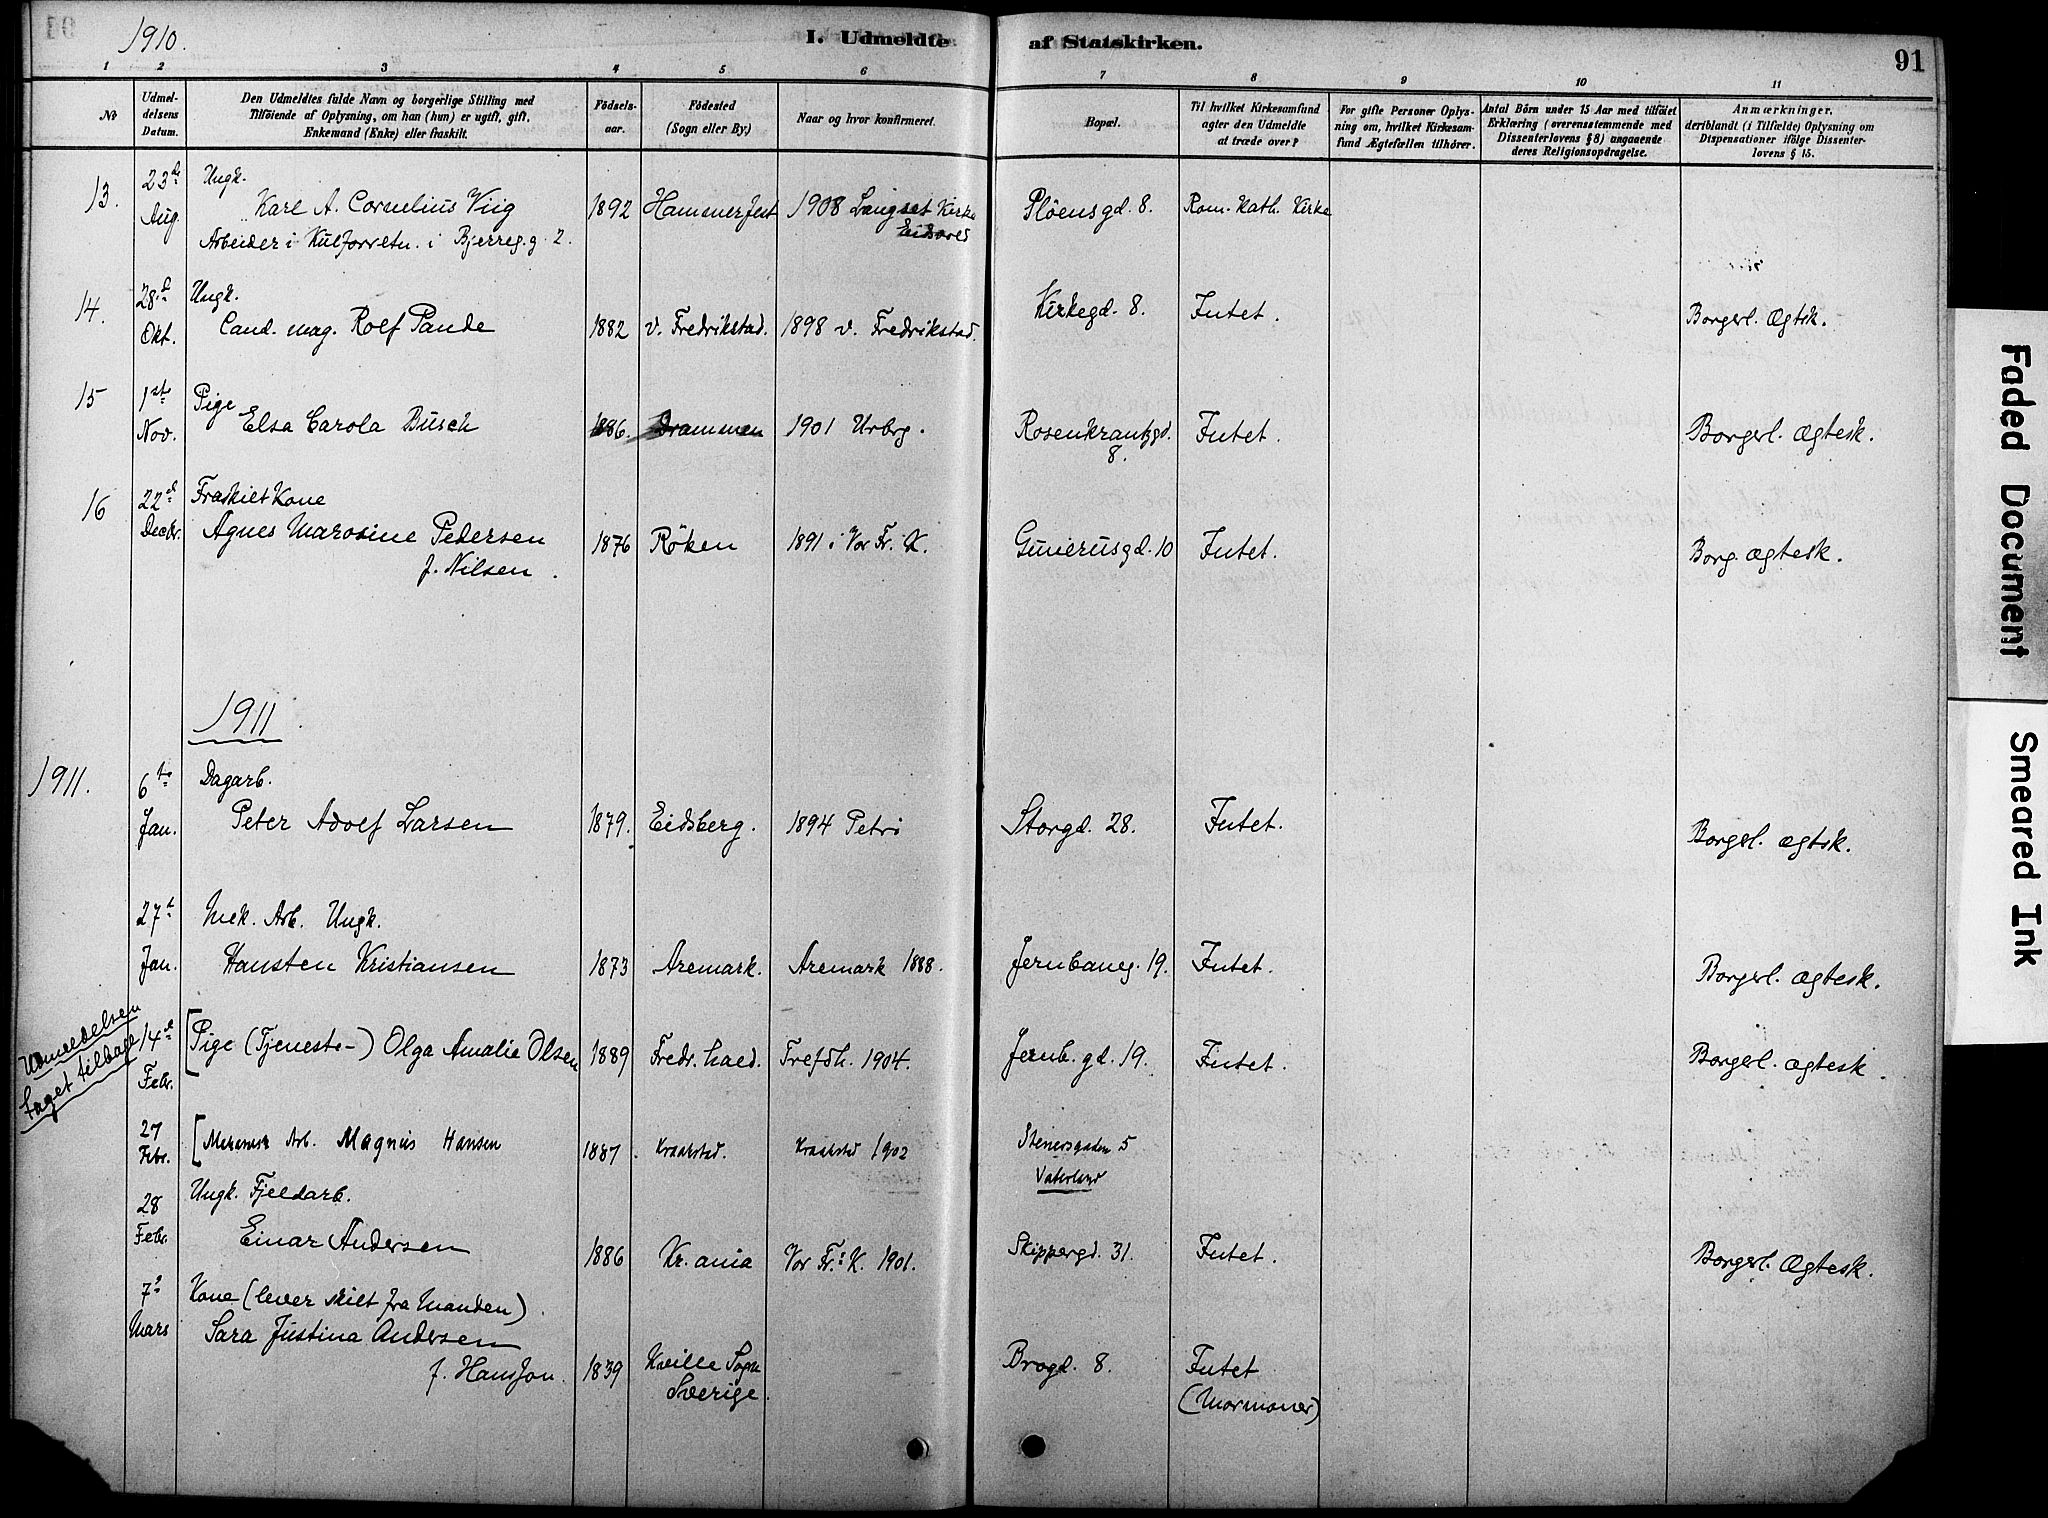 1910.
I. Udmeldte af Statskirken.
91
1 2 3 4 5 6 7 8 9 10 11
No
Udmeldelsens Datum.
Den Udmeldtes fulde Navn og borgerlige Stilling med
Tilföiende af Oplysning, om han (hun) er ugift, gift,
Enkemand (Enke) eller fraskilt.
Födselsaar.
Födested
(Sogn eller By)
Naar og hvor konfirmeret.
Bopæl.
Til hvilket Kirkesamfund
agter den Udmeldte
at træde over?
For gifte Personer Oplysning om, hvilket Kirkesamfund Ægtefællen tilhører.
Antal Börn under 15 Aar med tilföiet
Erklæring (overensstemmende med
Dissenterlovens § 8) angaaende
deres Religionsopdragelse.
Anmærkninger,
deriblandt (i Tilfælde) Oplysning om
Dispensationer ifölge Dissenterlovens § 15.
13. 23de Aug. Ungk.
Karl A. Cornelius Viig 1892 Hammerfest 1908 Langset Kirke Eidsvold Plöensgd. 8. Rom. Kath. Kirke
Arbeider i Kulforretn. i Bjerreg.g. 2.
14. 28d Okt. Ungk.
Cand. mag. Rolf Pande 1882 v. Fredrikstad. 1898 v. Fredrikstad. Kirkegd. 8. Intet. Borgerl. Ægtsk.
15 1ste Nov. Pige
Elsa Carola Busch 1886. Drammen 1901 Urbrg. Rosenkrantzgd. 8. Intet. Borgerl. Ægtesk.
16 22d Decbr. Fraskilt Kone
Agnes Marosine Pedersen
f. Nilsen. 1876 Röken 1891 i Vor Fr. K. Gunerusgd. 10 Intet. Borg. ægtesk.
1911
1911. 6te Jan. Dagarb.
Peter Adolf Larsen 1879. Eidsberg. 1894 Petri Storgd. 28. Intet. Borgerl. ægtsk.
27d Jan. Mek. Arb. Ungk.
Hansten Kristiansen 1873 Aremark. Aremark 1888. Jernbaneg. 19. Intet. Borgerl. ægtesk.
Udmeldelsen
taget tilbage
14d Febr. [Pige (Tjeneste-) Olga Amalie Olsen 1889 Fredr.hald. Trefoldh. 1904. Jernb. gd. 19. Intet. Borgerl. ægtesk.
27 Febr. [Mekanisk Arb. Magnus Hansen 1887. Kraakstad. Kraakstad 1902 Stenersgaden 5
Vaterland
28 Febr. Ungk. Fjeldarb.
Einar Andersen 1886 Kr.ania Vor Fr.s K. 1901. Skippergd. 31. Intet. Borgerl. Ægtesk.
7d Mars Kone (lever skilt fra Manden).
Sara Justina Andersen
f. Hansson. 1839 Kville Sogn
Sverige. Brogd. 8. Intet
(Mormoner)
Faded Document
Smeared Ink